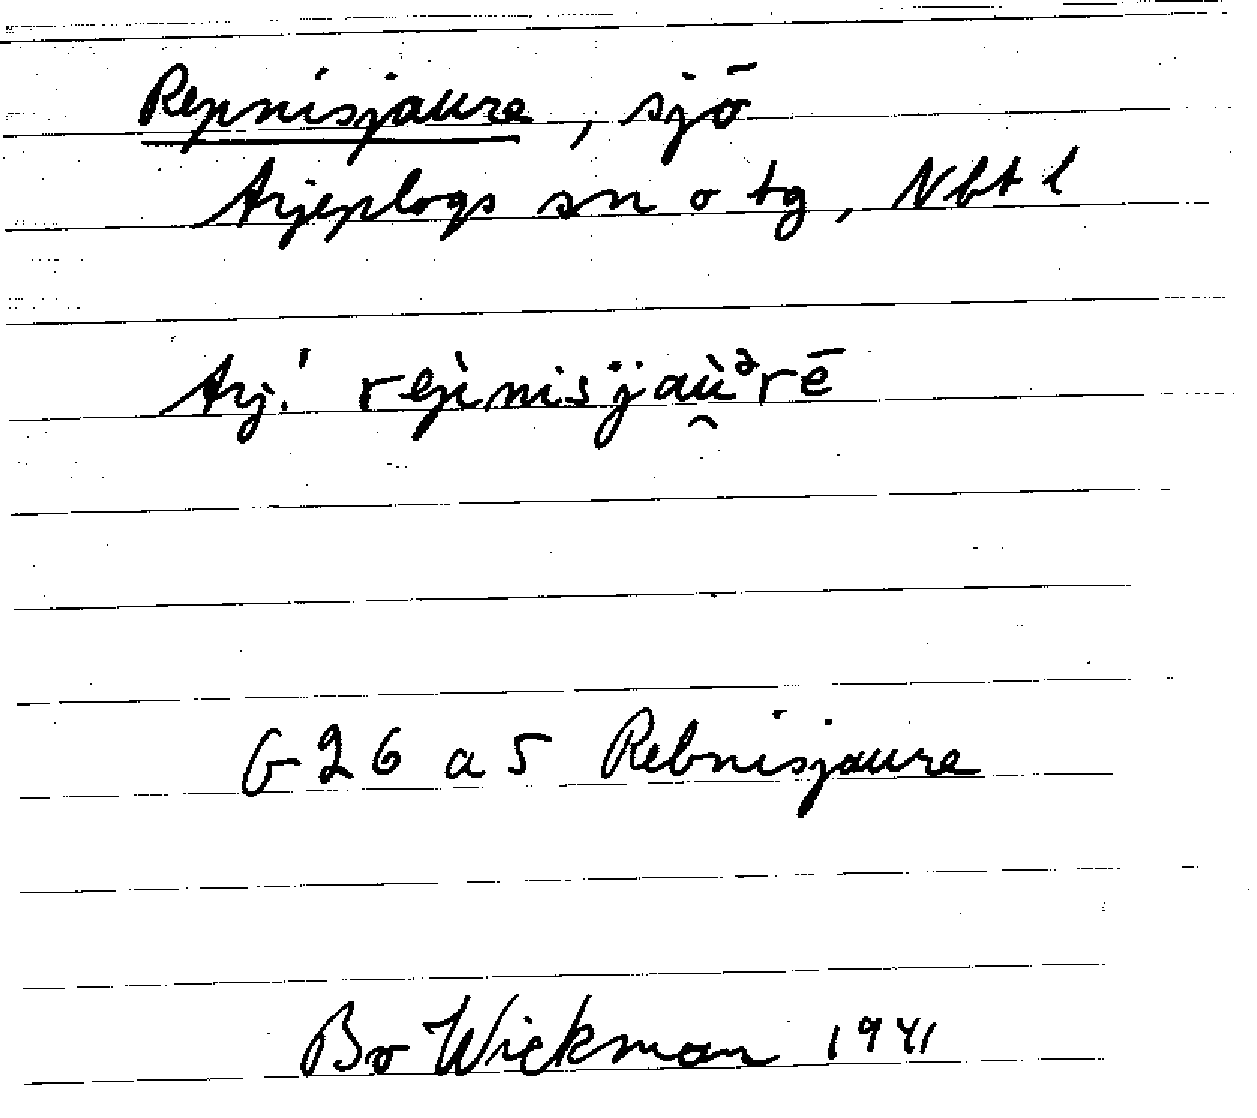 Repnisjaure, sjö
Arjeplogs sn o tg, Nbt l
Arj.' repi̇̀nisjaù̯ᵊrē
G26 a 5 Rebnisjaure
Bo Wickman 1941